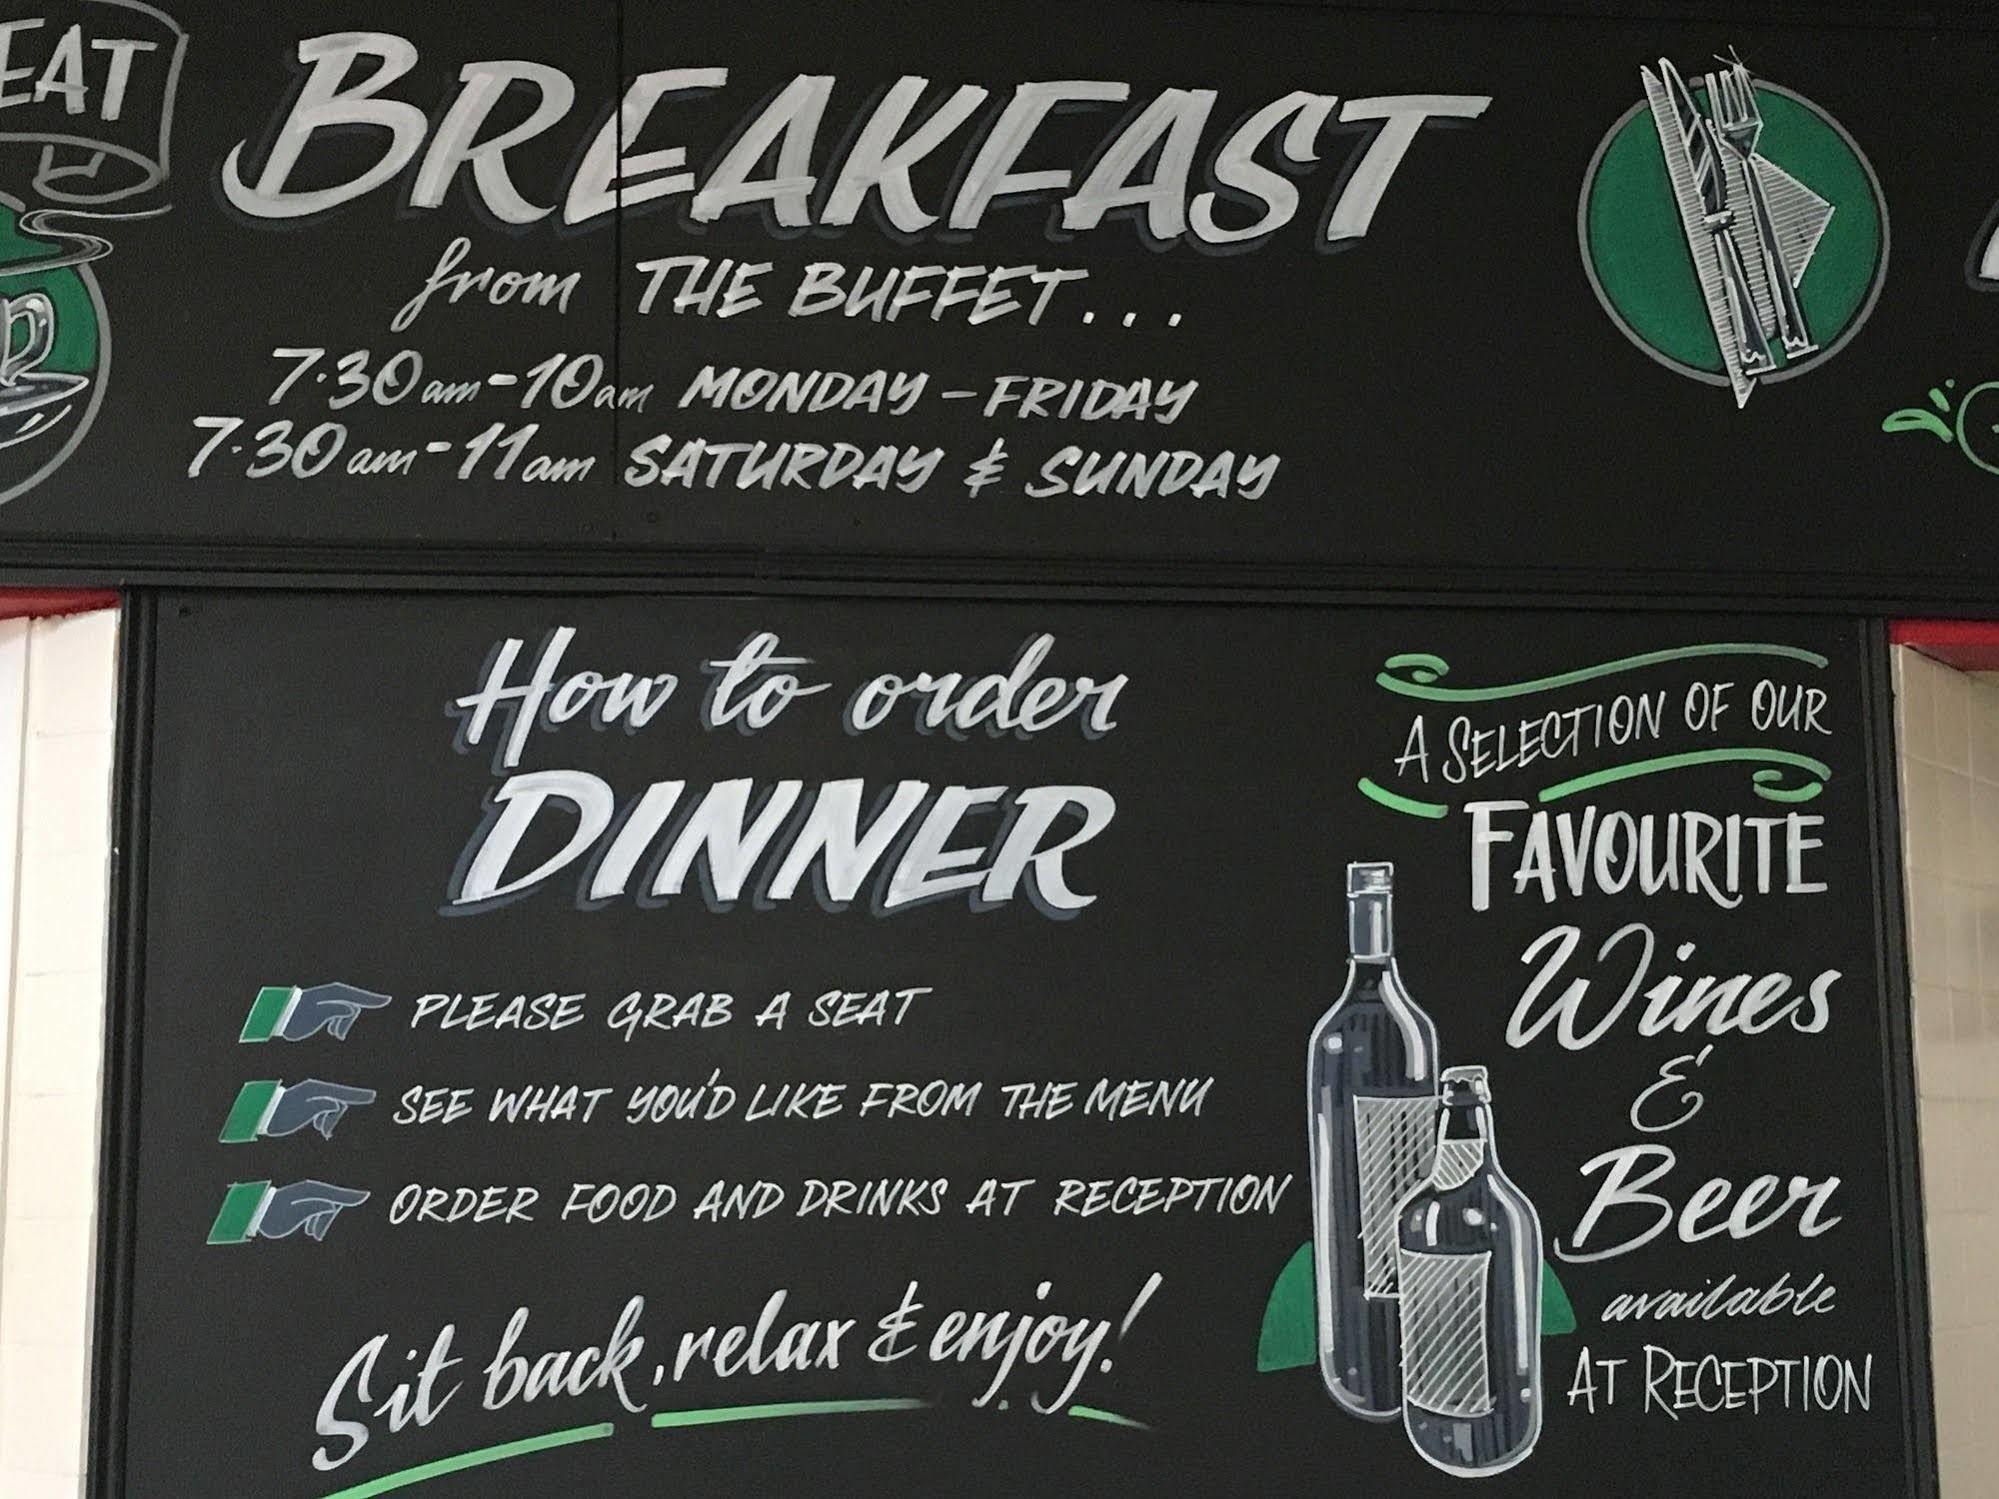 EAT
BREAKFAST
from THE BUFFET...
7·30am-10am MONDAY - FRIDAY
7·30am-11am SATURDAY & SUNDAY
How to order
DINNER
PLEASE GRAB A SEAT
SEE WHAT YOU'D LIKE FROM THE MENU
ORDER FOOD AND DRINKS AT RECEPTION
Sit back, relax & enjoy!
A SELECTION OF OUR
FAVOURITE
Wines
&
Beer
available
AT RECEPTION